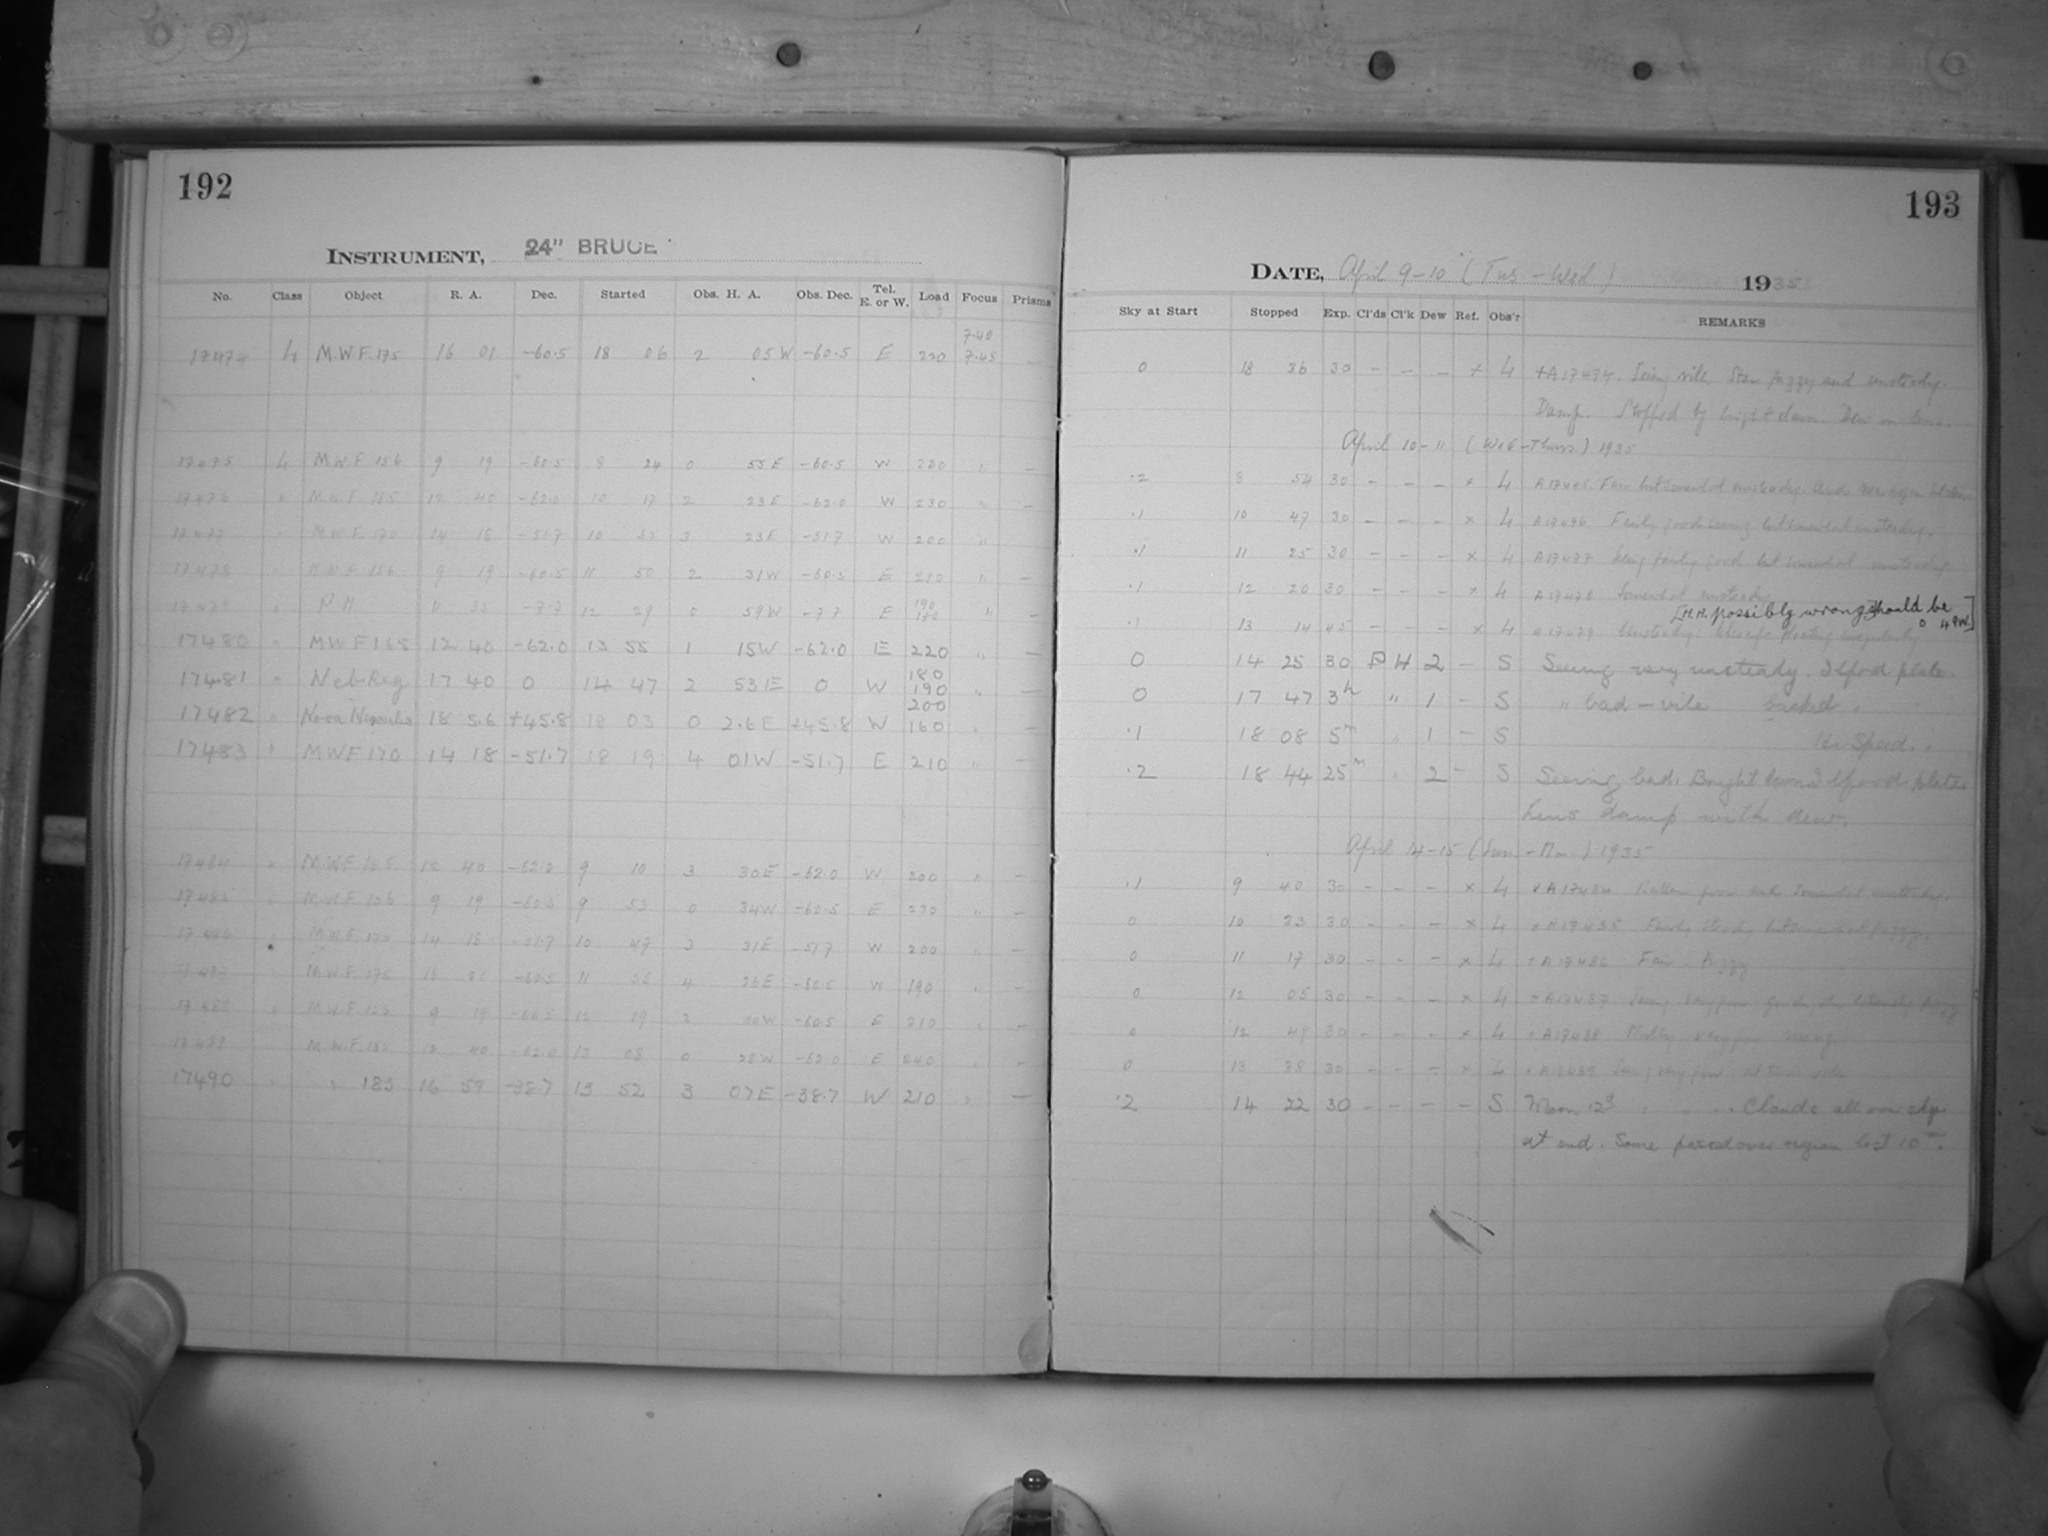 192
INSTRUMENT, 24" BRUCE
No. Class Object R. A. Dec. Started Obs. H. A. Obs. Dec. Tel. E. or W. Load Focus Prisms
7.40
17474 L M.W.F. 175 16 01 -60.5 18 06 2 05 W -60.5 E 220 7.45 -
17475 L M.W.F. 156 9 19 -60.5 8 24 0 55 E -60.5 W 220 " -
17476 " M.W.F. 165 12 40 -62.0 10 17 2 23 E -62.0 W 230 " -
17477 " M.W.F. 170 14 18 -51.7 10 55 3 23 E -51.7 W 200 "
17478 " M.W.F. 156 9 19 -60.5 11 50 2 31 W -60.5 E 210 " -
17479 " P H 11 35 -7.7 12 29 0 59 W -7.7 E 190 " -
17480 " MWF 165 12 40 -62.0 13 55 1 15W -62.0 E 220 " -
17481 " Neb Reg 17 40 0 14 47 2 53 E 0 W 180 190 200 " -
17482 " Nova Herculis 18 5.6 +45.8 18 03 0 2.6 E +45.8 W 160 " -
17483 " MWF 170 14 18 -51.7 18 19 4 01W -51.7 E 210 " -
17484 " M.W.F. 165 12 40 -62.0 9 10 3 30 E -62.0 W 200 " -
17485 " M.W.F. 156 9 19 -60.5 9 53 0 34W -60.5 E 230 " -
17486 " M.W.F. 170 14 18 -51.7 10 47 3 31 E -51.7 W 200 " -
17487 " M.W.F. 175 16 01 -60.5 11 35 4 26 E -60.5 W 190 " -
17488 " M.W.F. 9 19 -60.5 12 19 3 00W -60.5 E 210 " -
17489 M.W.F. 12 40 -62.0 13 08 0 22W -62.0 E 240 " -
17490 " " 183 16 57 -38.7 13 52 3 07 E -38.7 W 210 " -
193
DATE, April 9-10 (Tues - Wed) 1935
Sky at Start Stopped Exp. Cl'ds Cl'k Dew Ref. Obs'r REMARKS
0 18 36 30 - - - + L +A 17474. Seeing vile. Star fuzzy and unsteady.
Damp. Stopped by bright dawn. Dew on lens.
April 10-11 (Wed - Thurs) 1935
.2 8 54 30 - - - x L A 17475 Fair but somewhat unsteady.
.1 10 47 30 - - - x L A 17476 Fairly good seeing but somewhat unsteady.
.1 11 25 30 - - - x L A 17477 Seeing fairly good but somewhat unsteady
.1 12 20 30 - - - x L A 17478 Somewhat unsteady
[H.A. possibly wrong should be
0 49W.]
.1 13 14 45 - - - x L A 17479 Unsteady.
0 14 25 30 P H 2 - S Seeing very unsteady. Ilford plate.
0 17 47 3h " 1 - S " bad - vile backed "
.1 18 08 5m " 1 - S Speed. "
.2 18 44 25m " 2 - S Seeing bad. Bright dawn. Ilford plate.
Lens damp with dew.
April 14-15 (Sun. - Mon.) 1935
.1 9 40 30 - - - x L x A 17484 Rather poor and somewhat unsteady.
0 10 23 30 - - - x L x A 17485
0 11 17 30 - - - x L x A 17486 Fair. fuzzy
0 12 05 30 - - - x L x A 17487 Seeing
0 12 49 30 - - - x L x A 17488 seeing
0 13 38 30 - - - x L x A 17489 Seeing very poor at times vile
.2 14 22 30 - - - - S Moon 12d " " " Clouds all over sky
at end. Some passed over region lost 10m.